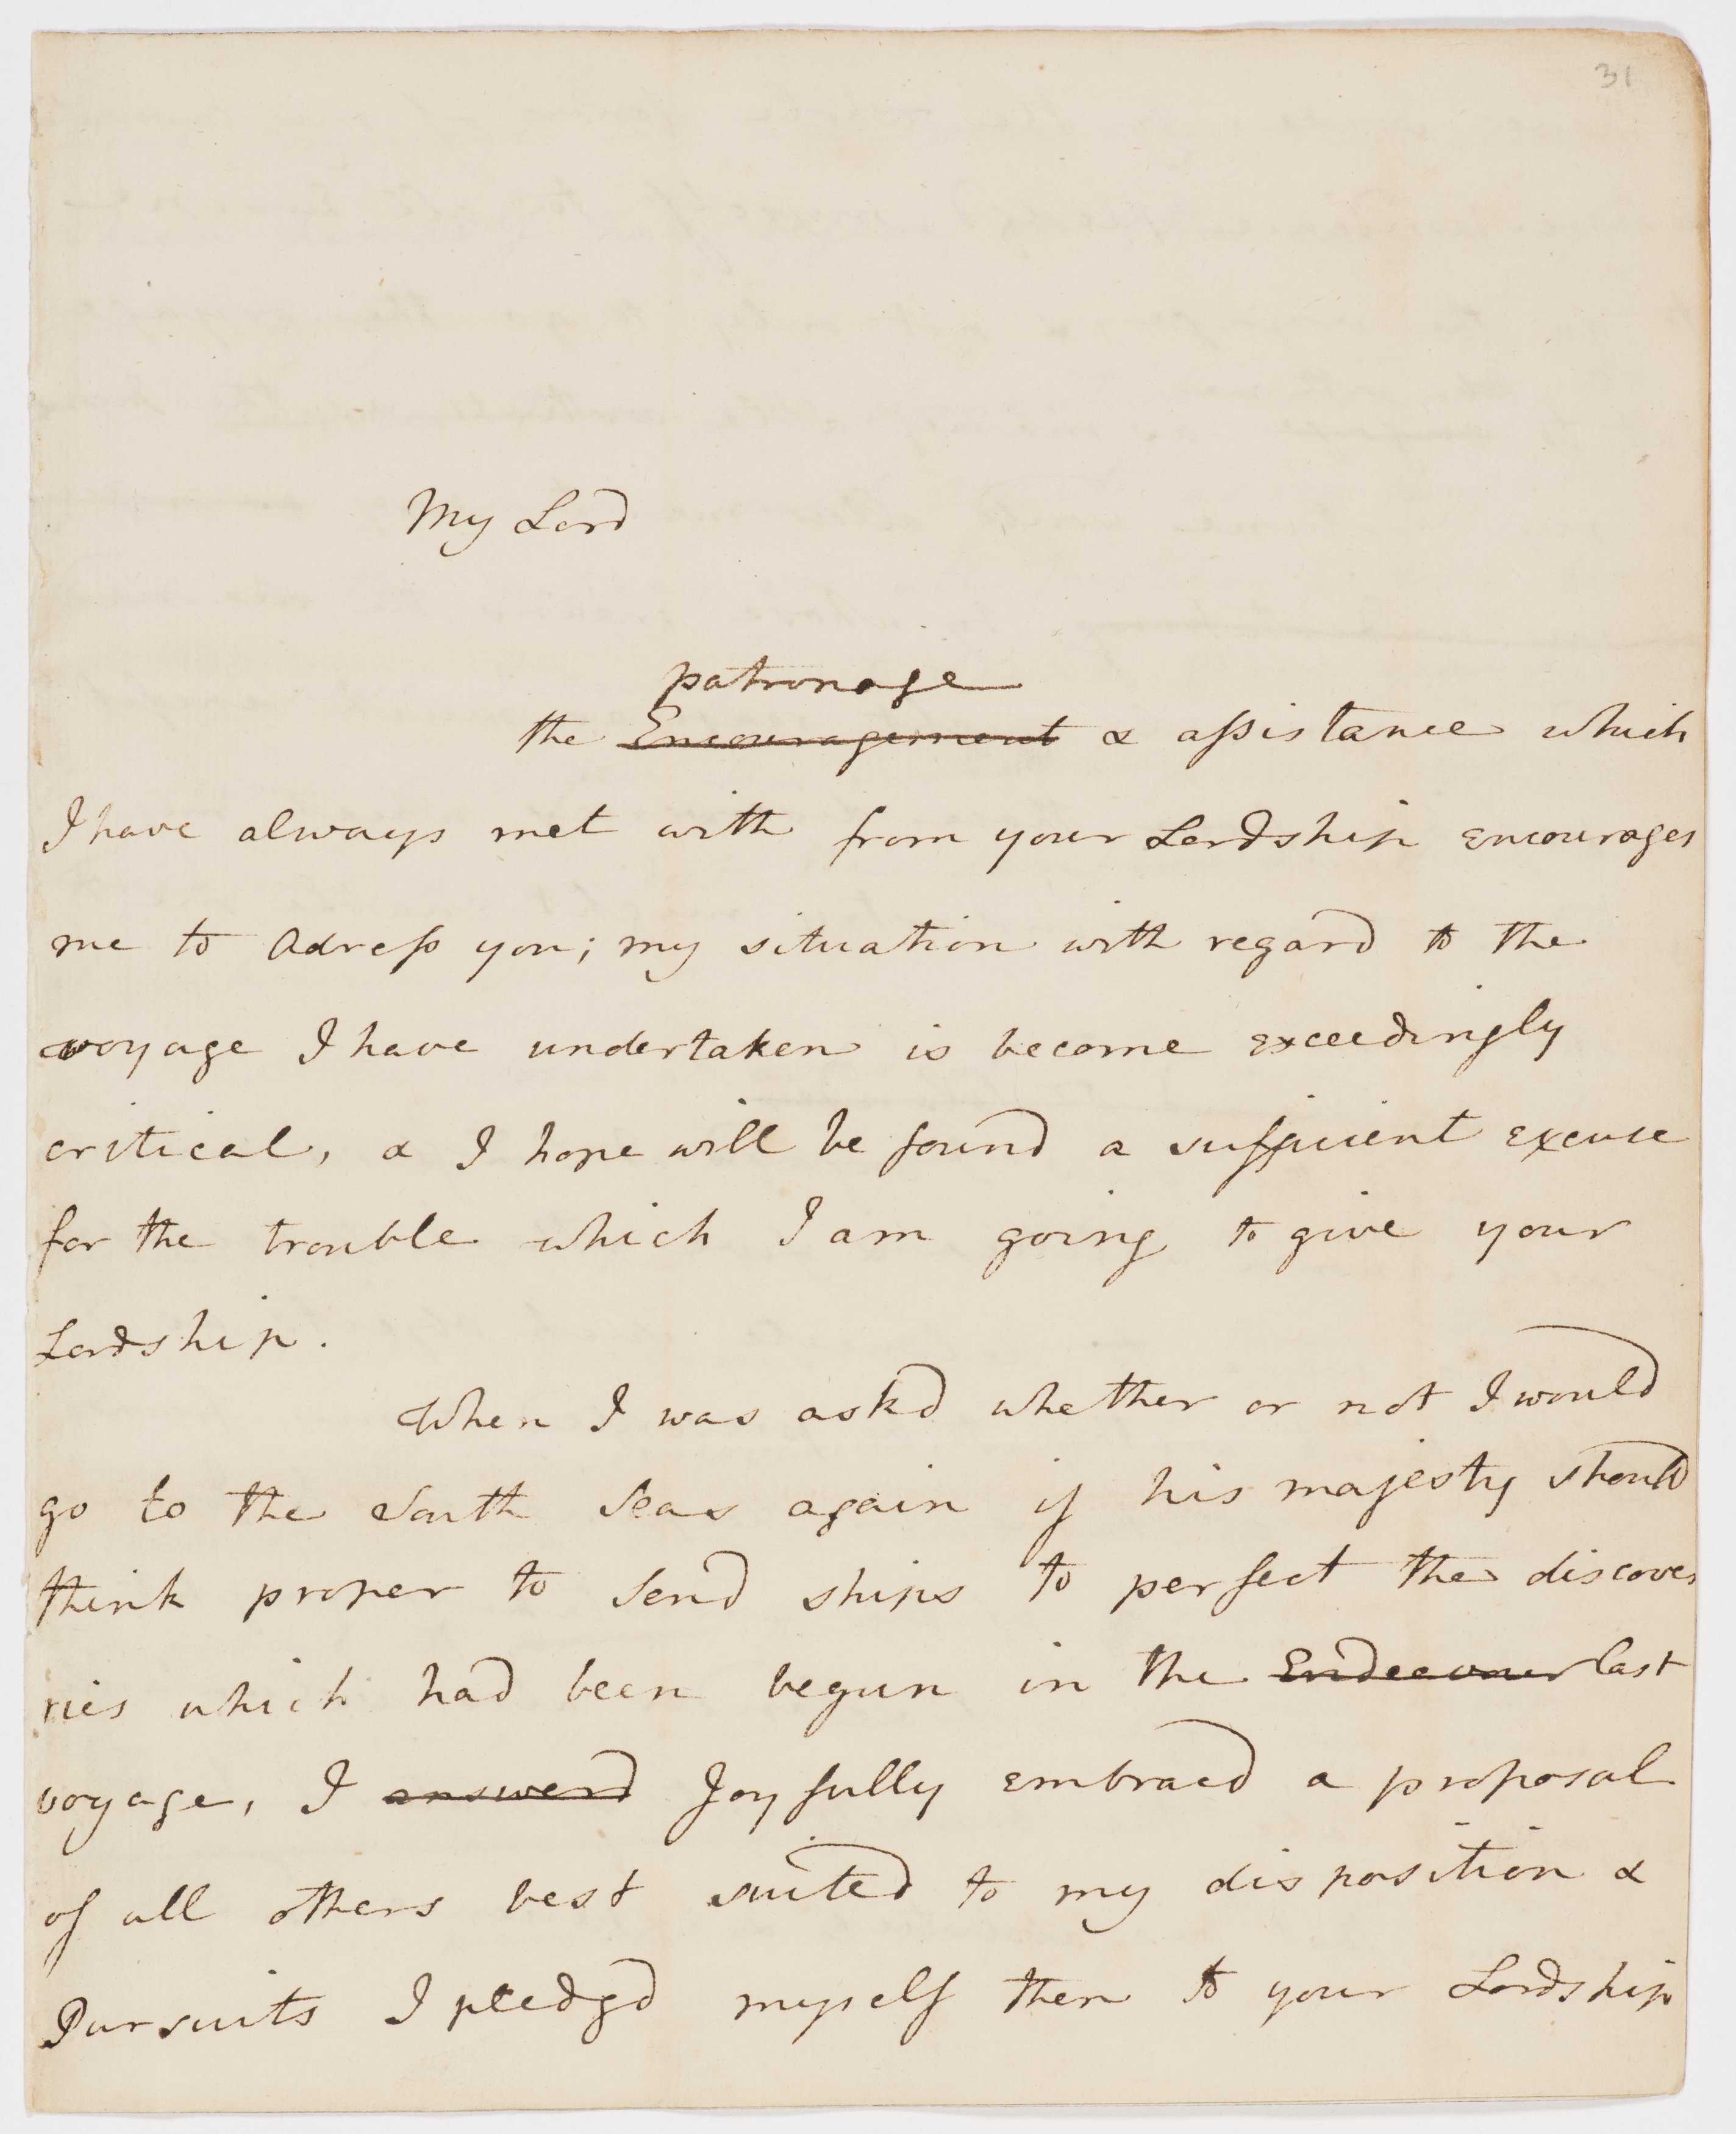 31
My Lord
patronage
the Encouragement & assistance which
I have always met with from your Lordship encourages
me to Adress you; my situation with regard to the
voyage I have undertaken is become exceedingly
critical, & I hope will be found a sufficient excuse
for the trouble which I am going to give your
Lordship.
When I was askd whether or not I would
go to the South Seas again if his majesty should
think proper to send ships to perfect the discove
ries which had been begun in the Endeavour last
voyage, I answerd Joyfully embracd a proposal
of all others best suited to my disposition &
Pursuits I pledgd myself then to your Lordship